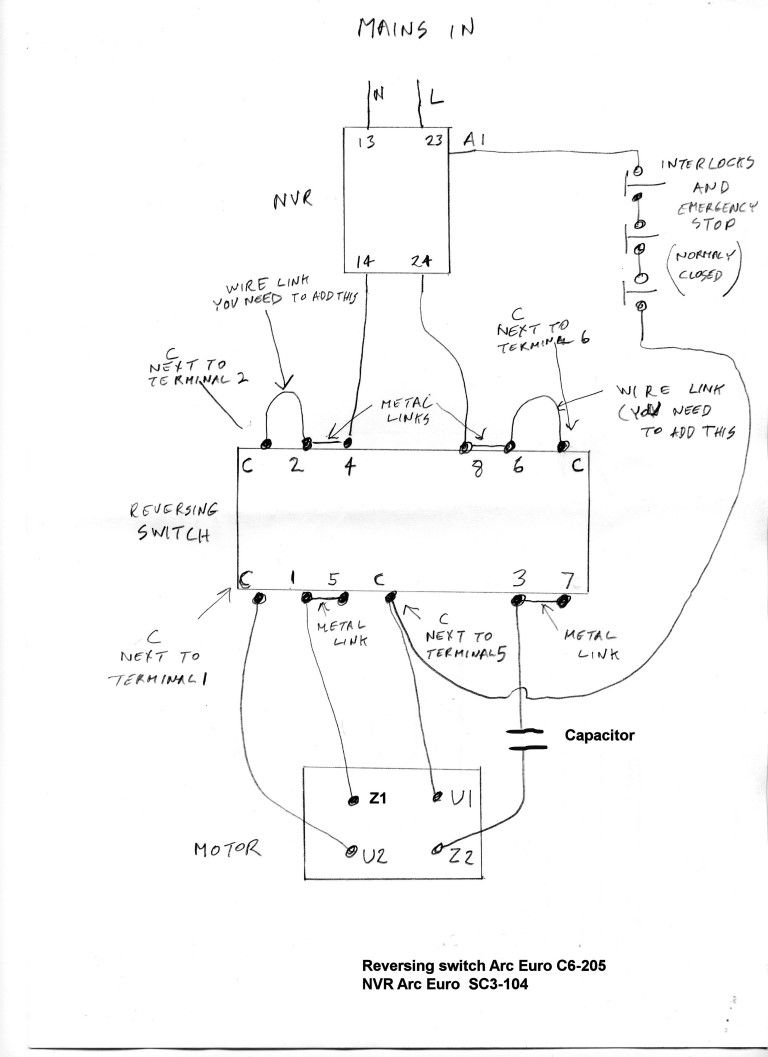 MAINS IN
N
L
13
23
A1
INTERLOCKS
AND
EMERGENCY
STOP
(NORMALY
CLOSED)
NVR
14
24
WIRE LINK
YOU NEED TO ADD THIS
C
NEXT TO
TERMINAL 2
C
NEXT TO
TERMINAL 6
METAL
LINKS
WIRE LINK
(YOU NEED
TO ADD THIS
C
2
4
8
6
C
REVERSING
SWITCH
C
1
5
C
3
7
METAL
LINK
C
NEXT TO
TERMINAL 5
METAL
LINK
C
NEXT TO
TERMINAL 1
Capacitor
Z1
U1
MOTOR
U2
Z2
Reversing switch Arc Euro C6-205
NVR Arc Euro SC3-104